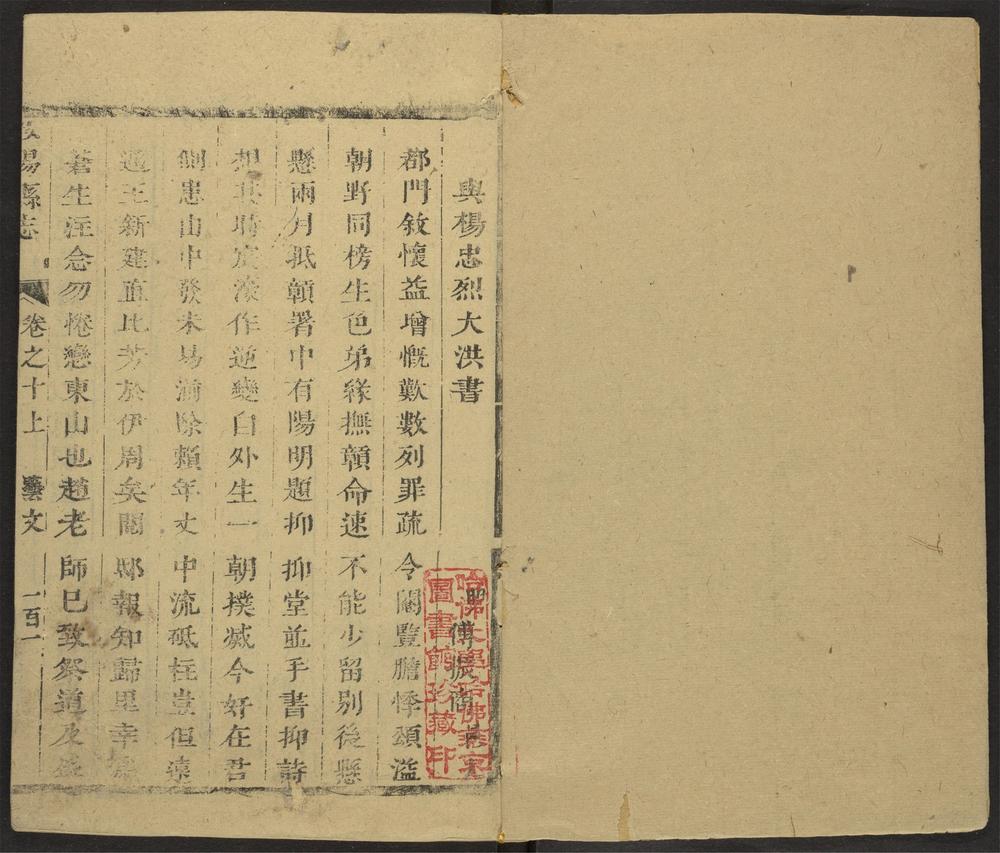 與楊忠烈大洪書
明傅振商
都門敘懷益增慨歎數列罪疏令閹豎膽悸頌溢
朝野同榜生色弟緣撫贛命速不能少留別後懸
懸兩月抵贛署中有陽明題抑抑堂並手書抑詩
想其時宸濠作逆變自外生一朝撲滅今好在君
側患山中發未易滌除賴年丈中流砥柱豈但遠
邁王新建直比芳於伊周矣閱邸報知歸里幸為
蒼生注念勿惓戀東山也趙老師已致祭道及
陽縣志
卷之十上
藝文
一百一
哈佛大學哈佛燕京
圖書館珍藏印